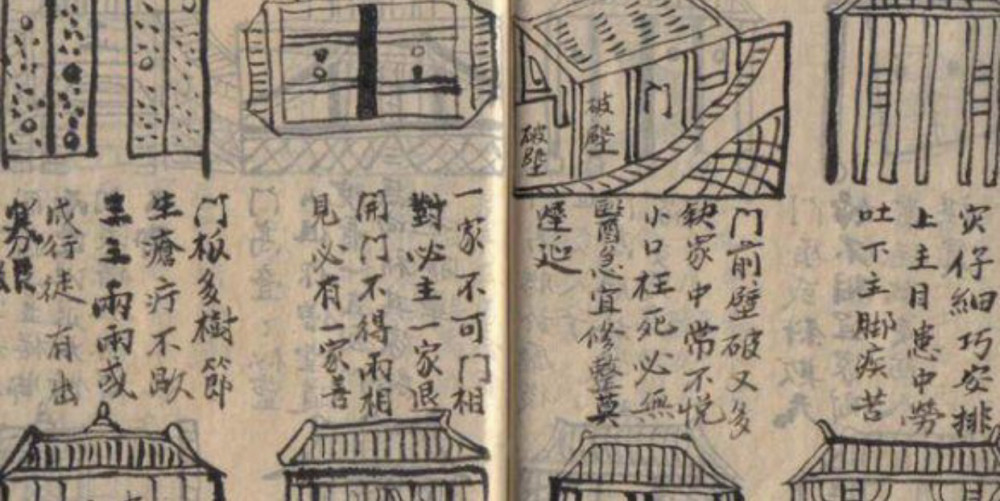 灾仔細巧安排
上主目患中勞
吐下主脚疾苦
门
破壁
破壁
门前壁破又多
缺家中常不悦
小口枉死必無
醫急宜修整莫
遲延
一家不可门相
對必主一家退
開门不得兩相
見必有一家善
门板多樹節
生瘡疔不歇
三三兩兩或
成行徒有出